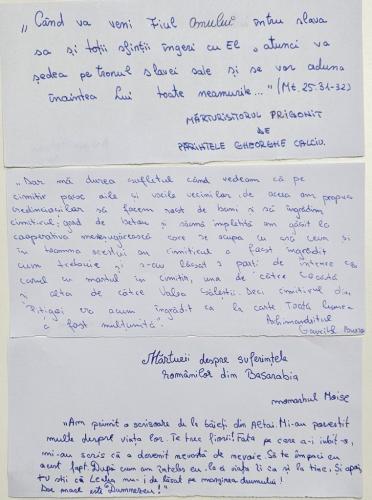 „Când va veni Fiul Omului întru slava
sa și toții sfinții îngeri cu El, atunci va
ședea pe tronul slavei sale și se vor aduna
înaintea Lui toate neamurile..." (Mt. 25:31-32)
MĂRTURISITORUL PRIGONIT
DE
PĂRINTELE GHEORGHE CALCIU.
„Dar mă durea sufletul când vedeam că pe
cimitir pasc oile și vacile vecinilor, de aceea am propus
credincioșilor să facem rost de bani și să îngrădim
cimitirul; gard de beton și sârmă împletită am găsit la
cooperativa meșteșugărească care se ocupa cu așa ceva și
în toamna acelui an cimitirul a fost îngrădit
cum trebuie și s-au lăsat 2 porți de intrare cu
carul cu mortul în cimitir, una de către Coastă
și alta de către Valea Săliștii. Deci cimitirul din
Pitigai era acum îngrădit ca la carte. Toată lumea
a fost mulțumită".
Arhimandritul
Gavriil
Mărturii despre suferințele
românilor din Basarabia
monahul Moise
„Am primit o scrisoare de la băieți din Altai. Mi-au povestit
multe despre viața lor. Te trec fiori! Fata pe care a-i iubit-o,
mi-au scris că a devenit nevastă de nevoie. Să te împaci cu
acest fapt. După cum am înțeles eu, le-a viața li ca și la tine. Și apoi,
tu știi că Leahu nu-i de lăsat pe marginea drumului!
Dar unde este Dumnezeu!"